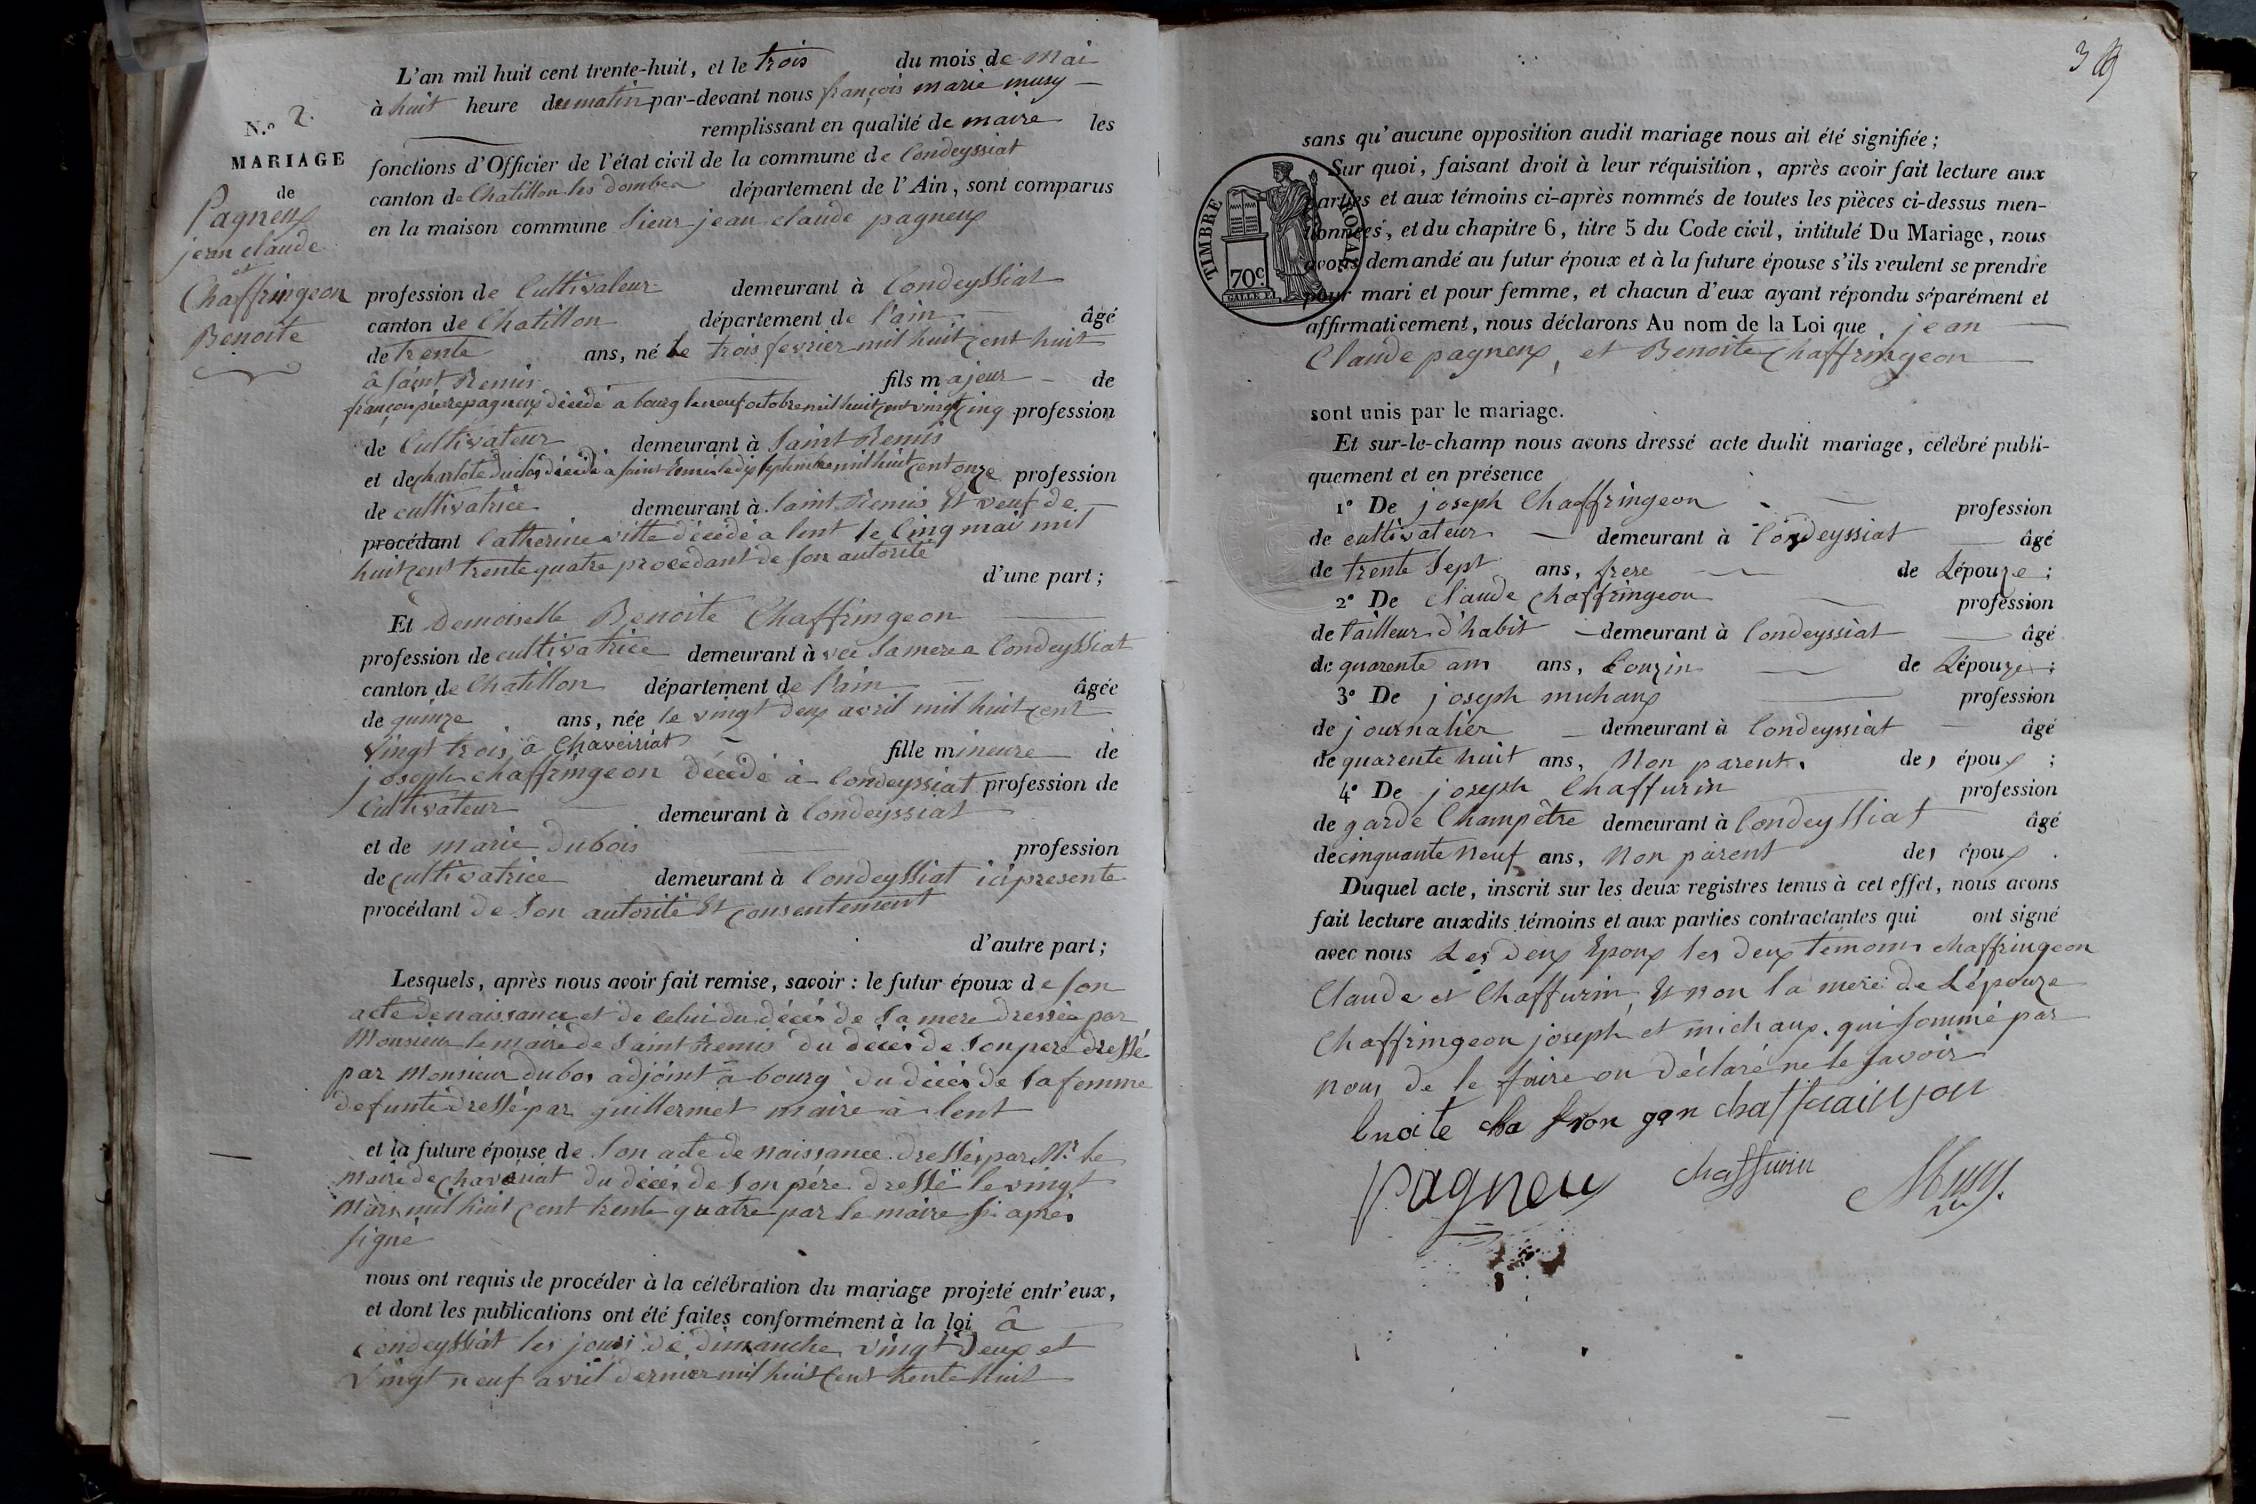 N.o 2.
MARIAGE
de
Pagneux
jean claude
et
Chaffringeon
Benoite
L'an mil huit cent trente-huit, et le trois du mois de mai
à huit heure du matin par-devant nous françois marie musy
remplissant en qualité de maire les
fonctions d'Officier de l'état civil de la commune de Condeyssiat
canton de Chatillon les dombes département de l'Ain, sont comparus
en la maison commune Sieur jean claude pagneux
profession de Cultivateur demeurant à Condeyssiat
canton de Chatillon département de l'ain âgé
de trente ans, né le trois fevrier mil huit cent huit
à Saint Remis fils majeur de
françois pierre pagneux décédé a bourg le neuf octobre mil huit cent vingt cinq profession
de Cultivateur demeurant à Saint Remis
et de charlote duclos décédé a saint Remis le dix septembre mil huit cent onze profession
de cultivatrice demeurant à Saint Remis Et veuf de
procédant Catherine vitte décédé a lent le Cinq mai mil
huit cent trente quatre procedant de son autorité
d'une part ;
Et Demoiselle Benoite Chaffringeon
profession de cultivatrice demeurant à vec sa mere a Condeyssiat
canton de Chatillon département de l'ain âgée
de quinze ans, née le vingt deux avril mil huit cent
vingt trois à Chaveiriat fille mineure de
joseph chaffringeon décédé à Condeyssiat profession de
Cultivateur demeurant à Condeyssiat
et de marie dubois profession
de cultivatrice demeurant à Condeyssiat ici presente
procédant de son autorité Et consentement
d'autre part ;
Lesquels, après nous avoir fait remise, savoir : le futur époux de son
acte de naissance et de celui du décès de sa mere dressée par
Monsieur le maire de Saint Remis du décès de son pere dressé
par Monsieur dubos adjoint à bourg du décès de sa femme
defunte dressé par guillermet maire à lent
et la future épouse de son acte de naissance dressé par Mr. le
maire de chaveiriat du décès de son pére dressé le vingt
Mars mil huit cent trente quatre par le maire si apres
signé
nous ont requis de procéder à la célébration du mariage projeté entr'eux,
et dont les publications ont été faites conformément à la loi à
Condeyssiat les jours de dimanche vingt deux et
vingt neuf avril dernier mil huit cent trente huit
sans qu'aucune opposition audit mariage nous ait été signifiée ;
Sur quoi, faisant droit à leur réquisition, après avoir fait lecture aux
parties et aux témoins ci-après nommés de toutes les pièces ci-dessus men-
tionnées, et du chapitre 6, titre 5 du Code civil, intitulé Du Mariage, nous
avons demandé au futur époux et à la future épouse s'ils veulent se prendre
pour mari et pour femme, et chacun d'eux ayant répondu séparément et
affirmativement, nous déclarons Au nom de la Loi que jean
Claude pagneux, et Benoite Chaffringeon
TIMBRE ROYAL
70c.
sont unis par le mariage.
Et sur-le-champ nous avons dressé acte dudit mariage, célébré publi-
quement et en présence
1o De joseph Chaffringeon profession
de cultivateur demeurant à Condeyssiat âgé
de trente sept ans, frere de Lépouze ;
2o De Claude Chaffringeon profession
de tailleur d'habit demeurant à Condeyssiat âgé
de quarente ans ans, Couzin de Lépouze ;
3o De joseph michaux profession
de journalier demeurant à Condeyssiat âgé
de quarente huit ans, Non parent des époux ;
4o De joseph Chaffurin profession
de garde Champêtre demeurant à Condeyssiat âgé
de cinquante neuf ans, Non parent des époux .
Duquel acte, inscrit sur les deux registres tenus à cet effet, nous avons
fait lecture auxdits témoins et aux parties contractantes qui ont signé
avec nous Les deux Epoux les deux témoins chaffringeon
Claude et Chaffurin, Et non la mere de Lépouze
Chaffringeon joseph et michaux. qui sommé par
nous de le faire on déclaré ne le savoir
bnoite cha fron gon chaffraingon
Pagneux chaffurin Musy